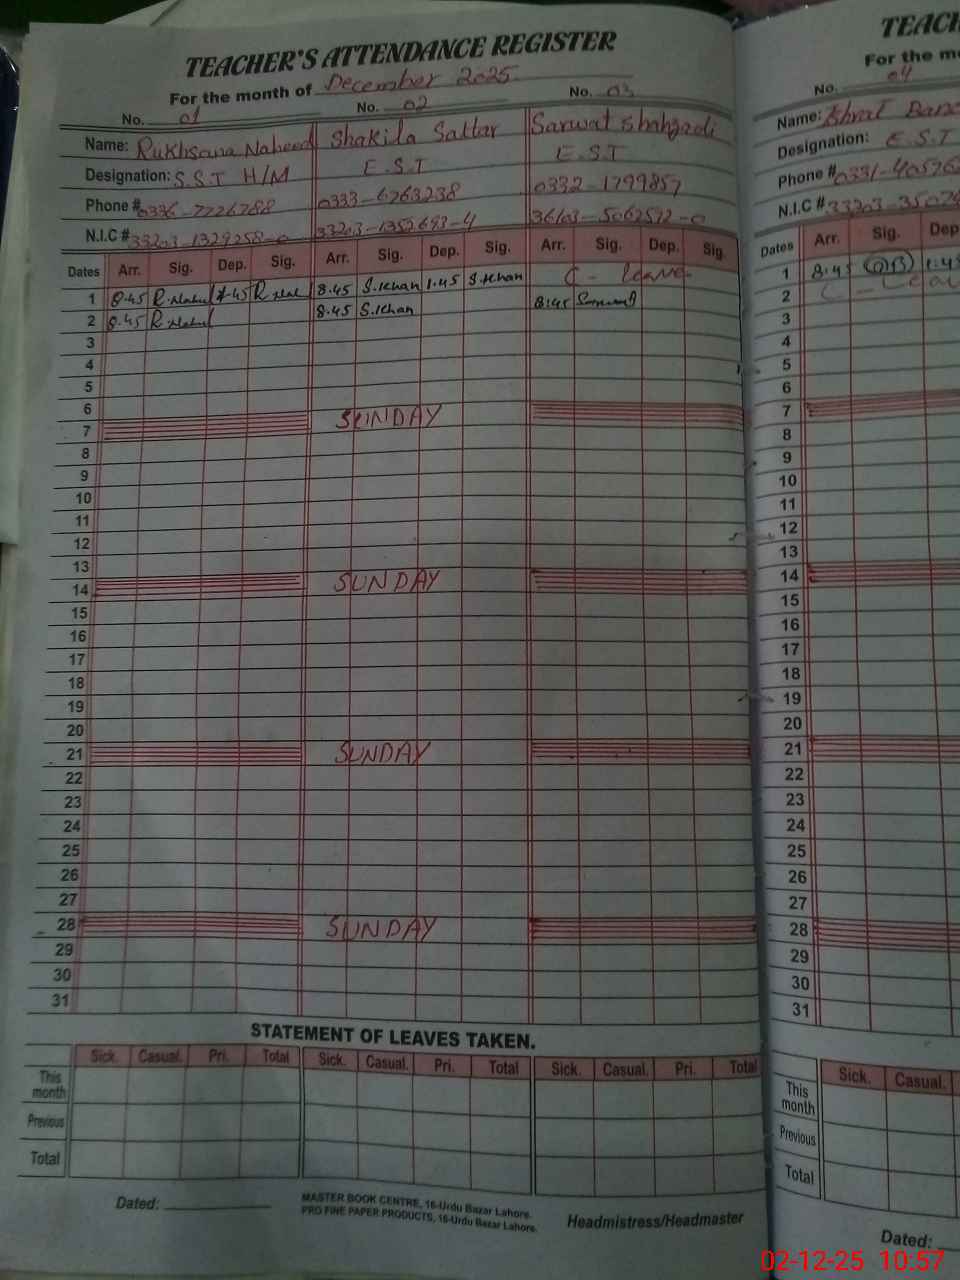 TEACHER'S ATTENDANCE REGISTER
For the month of December 2025
No. 01 No. 02 No. 03
Name: Rukhsana Naheed Shakila Sattar Sarwat Shahzadi
Designation: S.S.T H/M E.S.T E.S.T
Phone # 0336-7726788 0333-6763238 0332-1799857
N.I.C # 33203-1329258-0 33203-1352693-4 36103-5062572-0
Dates Arr. Sig. Dep. Sig. Arr. Sig. Dep. Sig. Arr. Sig. Dep. Sig.
1 8.45 1.45 8.45 S.Khan 1.45 S.Khan C - leave
2 8.45 8.45 S.Khan 8:45
3
4
5
6
7 SUNDAY
8
9
10
11
12
13
14 SUNDAY
15
16
17
18
19
20
21 SUNDAY
22
23
24
25
26
27
28 SUNDAY
29
30
31
STATEMENT OF LEAVES TAKEN.
Sick. Casual. Pri. Total Sick. Casual. Pri. Total Sick. Casual. Pri. Total
This month
Previous
Total
Dated:
MASTER BOOK CENTRE, 16-Urdu Bazar Lahore.
PRO FINE PAPER PRODUCTS, 16-Urdu Bazar Lahore.
Headmistress/Headmaster
TEACH
For the m
No. 04
Name:
Designation: E.S.T
Phone # 0331-40576
N.I.C # 33203-3507
Dates Arr. Sig. Dep
1 8:45 1.45
2 C - Leav
3
4
5
6
7
8
9
10
11
12
13
14
15
16
17
18
19
20
21
22
23
24
25
26
27
28
29
30
31
Sick. Casual.
This month
Previous
Total
Dated:
02-12-25 10:57